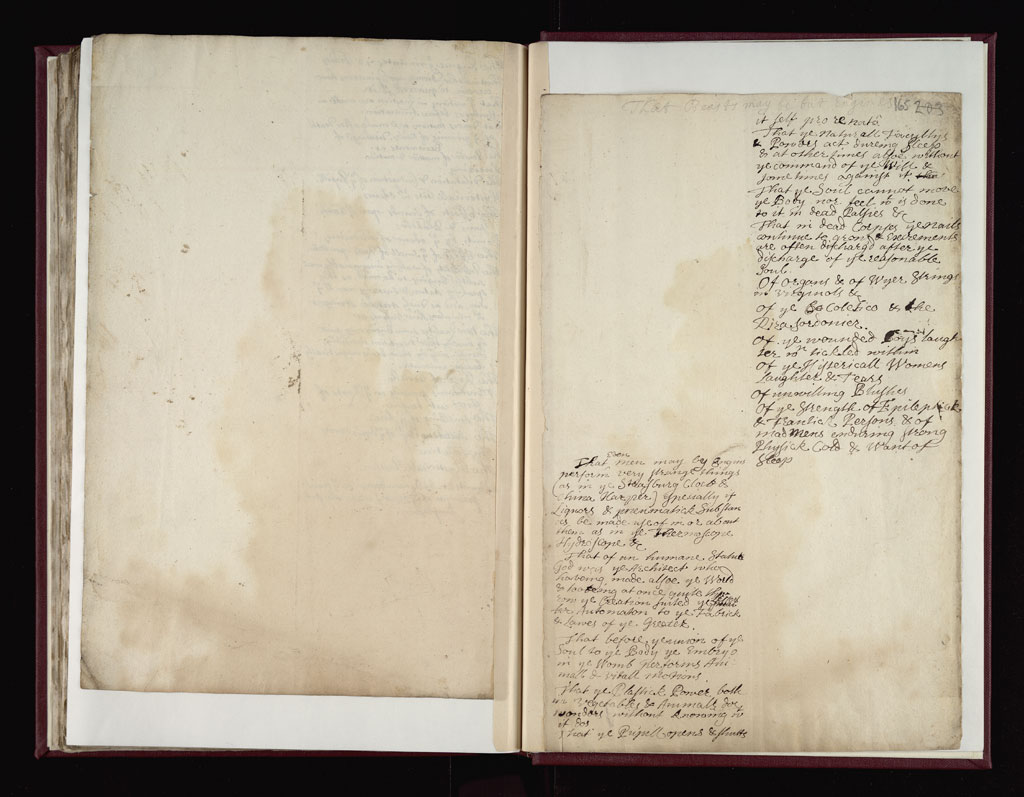 That Beasts may be but Engines
165 203
That even Men may by Engins
perform very strange things
(as in ye Strasburg Clock &
China Harper) specially if
Liquors & pneumatick Substan
ces be made use of in or about
them as in ye Thermoscope
Hydroscope &c
That of an humane Statue
God was ye Architect who
haveing made allso ye World
& looking at once quite thro
ow ye Creation suited ye
Automaton to ye Fabrick
& Lawes of ye Greater.
That before ye union of ye
Soul to ye Body ye Embryo
in ye Womb performs Ani
mall & vitall motions.
That ye Plastick Power both
in Vegetables & Animalls dos
wonders without knowing wt
it dos
That ye Pupill opens & shutts
it self pro re nata
That ye Naturall Facultys
& Powers act dureing Sleep
& at other times allso without
ye command of ye Will &
sometimes against it
That ye Soul cannot move
ye Body nor feel wt is done
to it in dead Palsies &c
That in dead Corpses ye Nails
continue to grow & Excrements
are often dischargd after ye
discharge of ye reasonable
Soul.
Of Organs & of Wyer Strings
in Virginols &c
Of ye Colchico & the
Riza Sordonier.
Of ye wounded Boys laugh
ter wn tickled within
Of ye Hystericall Womens
Laughter & Tears
Of unwilling Blushes
Of ye Strength of Epileptick
& Frantick Persons & of
mad Mens enduring strong
Physick Cold & Want of
Sleep